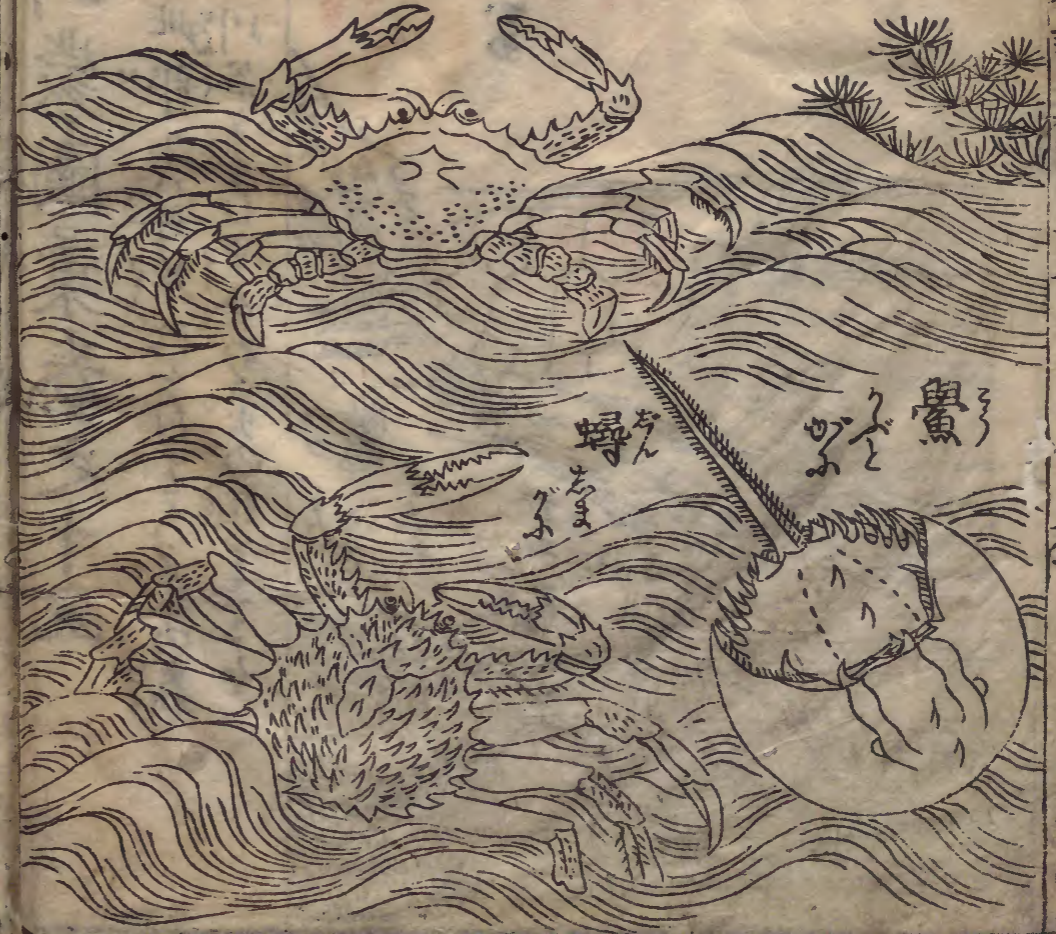 鱟 こう
かぶと
がに
蟳 じん
しま
がに